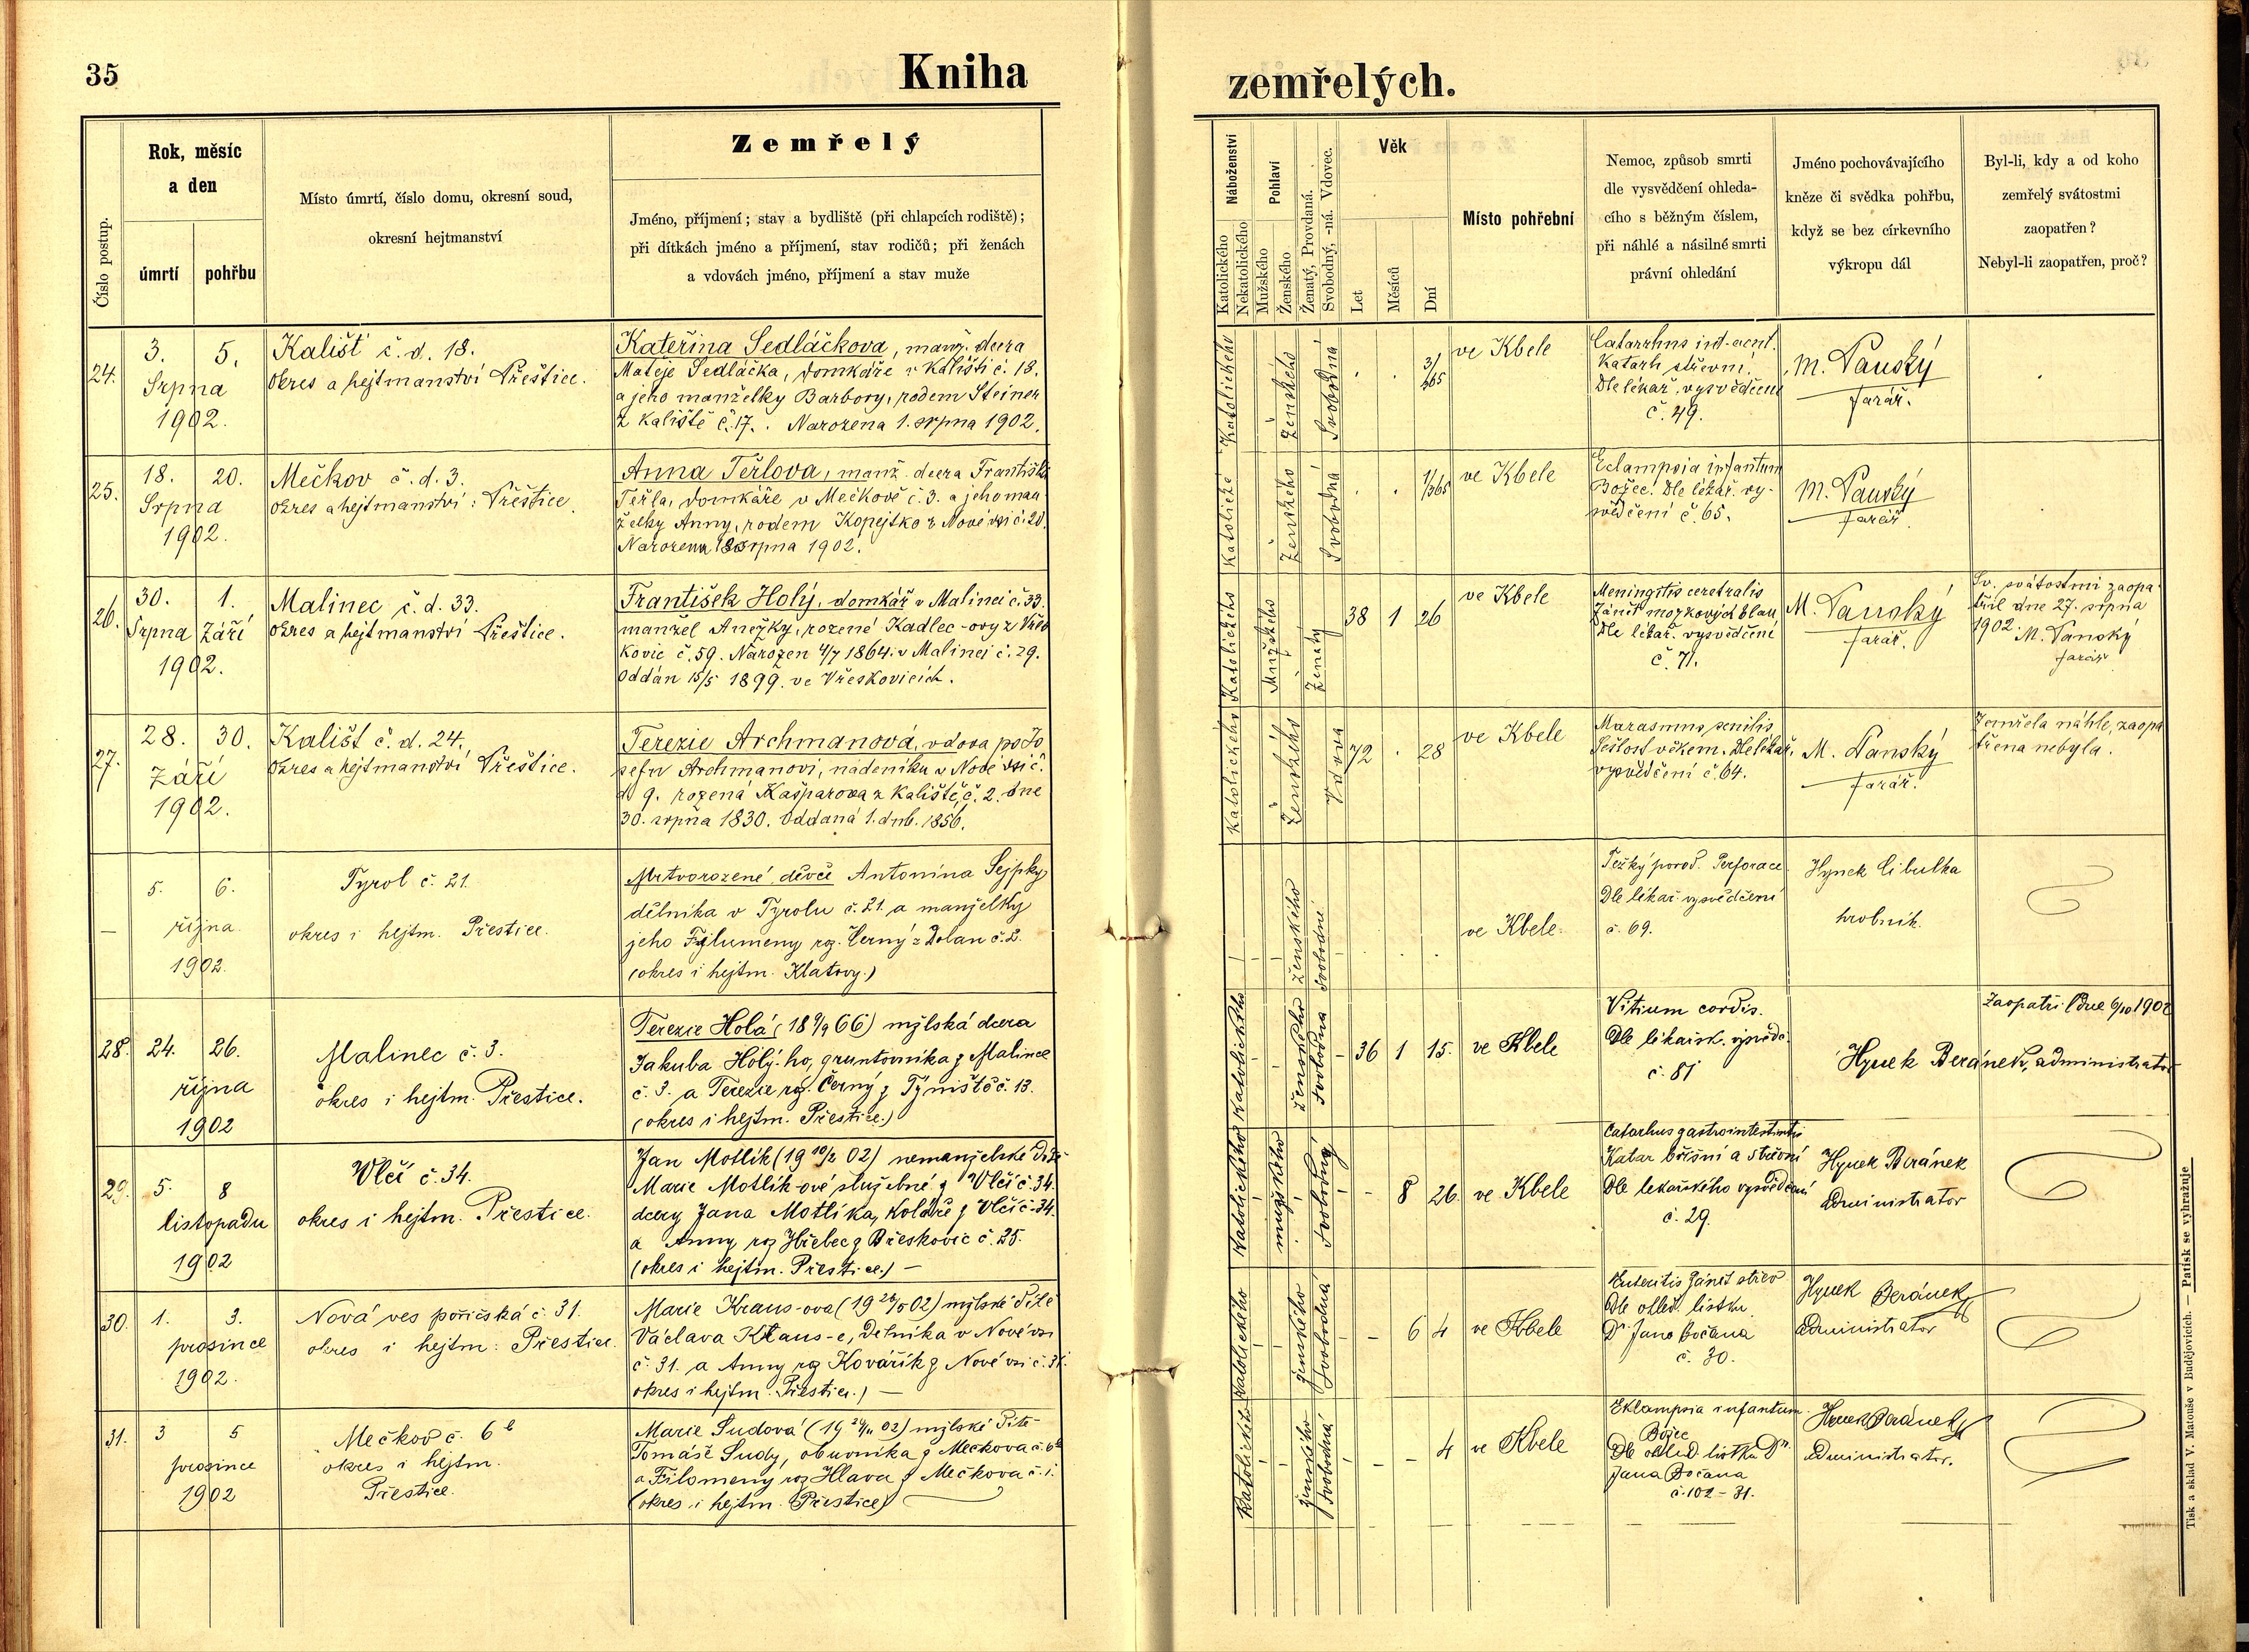 35
Kniha
zemřelých.
Číslo postup.
Rok, měsíc
a den
úmrtí
pohřbu
Místo úmrtí, číslo domu, okresní soud,
okresní hejtmanství
Zemřelý
Jméno, příjmení; stav a bydliště (při chlapcích rodiště);
při dítkách jméno a příjmení, stav rodičů; při ženách
a vdovách jméno, příjmení a stav muže
Náboženství
Katolického
Nekatolického
Pohlaví
Mužského
Ženského
Ženatý, Provdaná.
Svobodný, -ná. Vdovec.
Věk
Let
Měsíců
Dní
Místo pohřební
Nemoc, způsob smrti
dle vysvědčení ohleda-
cího s běžným číslem,
při náhlé a násilné smrti
právní ohledání
Jméno pochovávajícího
kněze či svědka pohřbu,
když se bez církevního
výkropu dál
Byl-li, kdy a od koho
zemřelý svátostmi
zaopatřen?
Nebyl-li zaopatřen, proč?
24.
3. 5.
Srpna
1902.
Kališť č. d. 18.
okres a hejtmanství Přeštice.
Kateřina Sedláčkova, manž. dcera
Matěje Sedláčka, domkáře v Kališti č. 18.
a jeho manželky Barbory, rodem Steiner
z Kaliště č. 17. Narozena 1. srpna 1902.
Katolického
Ženského
Svobodná
3/365
ve Kbele
Catarrhus int. acut.
Katarh střevní.
Dle lékař. vysvědčení
č. 49.
M. Panský
farář.
25.
18. 20.
Srpna
1902.
Mečkov č. d. 3.
okres a hejtmanství: Přeštice.
Anna Teřlova, manž. dcera Františka
Teřla, domkáře v Mečkově č. 3. a jeho man
želky Anny, rodem Kopejtko z Nové vsi č. 20.
Narozena 18 srpna 1902.
Katolické
Ženského
Svobodná
1/365
ve Kbele
Eclampsia infantum
Božec. Dle lékař. vy-
svědčení č. 65.
M. Panský
farář.
26.
30. 1.
Srpna Září
1902.
Malinec č. d. 33.
okres a hejtmanství Přeštice.
František Holý, domkář v Malinci č. 33.
manžel Anežky, rozené Kadlec-ovy z Vřes
kovic č. 59. Narozen 4/7 1864. v Malinci č. 29.
Oddán 15/5 1899. ve Vřeskovicích.
Katolického
Mužského
Ženatý
38 1 26
ve Kbele
Meningitis cerebralis
Zánět mozkových blan
Dle lékař. vysvědčení
č. 71.
M. Panský
farář.
Sv. svátostmi zaopa
třil dne 27. srpna
1902. M. Panský
farář
27.
28. 30.
Září
1902.
Kališt č. d. 24.
Okres a hejtmanství Přeštice.
Terezie Archmanová, vdova po Jo
sefu Archmanovi, nádeníku v Nové vsi č.
d. 9. rozená Kašparova z Kaliště č. 2. dne
30. srpna 1830. Oddaná 1. dub. 1856.
Katolického
Ženského
Vdova
72 28
ve Kbele
Marasmus senilis
Sešlost věkem. Dle lékař.
vysvědčení č. 64.
M. Panský
farář.
Zemřela náhle, zaopa
třena nebyla.
5. 6.
října
1902.
Tyrol č. 21.
okres i hejtm. Přestice.
Mrtvorozené děvče Antonína Sejpky
dělníka v Tyrolu č. 21 a manželky
jeho Filumeny roz. Černý z Dolan č. 2.
(okres i hejtm. Klatovy.)
Ženského
Svobodné
ve Kbele.
Težký porod. Perforace
Dle lékař. vysvědčení
č. 69.
Hynek Cibulka
hrobník.
28.
24. 26.
října
1902
Malinec č. 3.
okres i hejtm. Přestice.
Terezie Holá (18 9/9 66) mžlská dcera
Jakuba Holý-ho, gruntovníka z Malince
č. 3. a Terezie roz. Černý z Týniště č. 13.
(okres i hejtm. Přestice.)
Katolického
Ženského
Svobodna
36 1 15.
ve Kbele
Vitium cordis.
Dle lékařsk. vysvědč.
č. 81
Hynek Beránek, administrator
Zaopatřil dne 6/10 1902
29.
5. 8
listopadu
1902
Vlčí č. 34.
okres i hejtm. Přestice.
Jan Motlík (19 10/2 02) nemanželské dítě
Marie Motlík-ové služebné z Vlčí č. 34.
dcery Jana Motlíka, Koláře z Vlčí č. 34.
a Anny roz Hřebec z Březkovic č. 25.
(okres i hejtm. Přestice.)
Katolického
mužského
Svobodný
8 26.
ve Kbele
Catarhus gastrointestinalis
Katar břišní a střevní
Dle lekařského vysvědčení
č. 29.
Hynek Beránek
administrator
30.
1. 3.
prosince
1902.
Nová ves poříčská č. 31.
okres i hejtm: Přestice.
Marie Kraus-ova (19 26/5 02) mžlské dítě
Václava Kraus-e, dělníka v Nové vsi
č. 31. a Anny roz Kovářík z Nové vsi č. 31.
okres i hejtm. Přestice.)
Katolického
ženského
Svobodná
6 4
ve Kbele
Enteritis Zánět střev
Dle ohled. listku
Dr Jana Bočana
č. 30.
Hynek Beránek
administrator
31.
3 5
prosince
1902
Mečkov č. 6 b
okres i hejtm.
Přestice.
Marie Sudová (19 29/11 02) mžlské dítě
Tomáše Sudy, obuvníka z Mečkova č. 6b
a Filomeny roz Hlava z Mečkova č. 1.
(okres i hejtm. Přestice)
Katolického
ženského
svobodná
4
ve Kbele
Eklampsia infantum
Božec
Dle ohled listku Dr.
Jana Bočana
č. 102 - 31.
Hynek Beránek
administrator.
Tisk a sklad V. Matouše v Budějovicích. — Patisk se vyhražuje